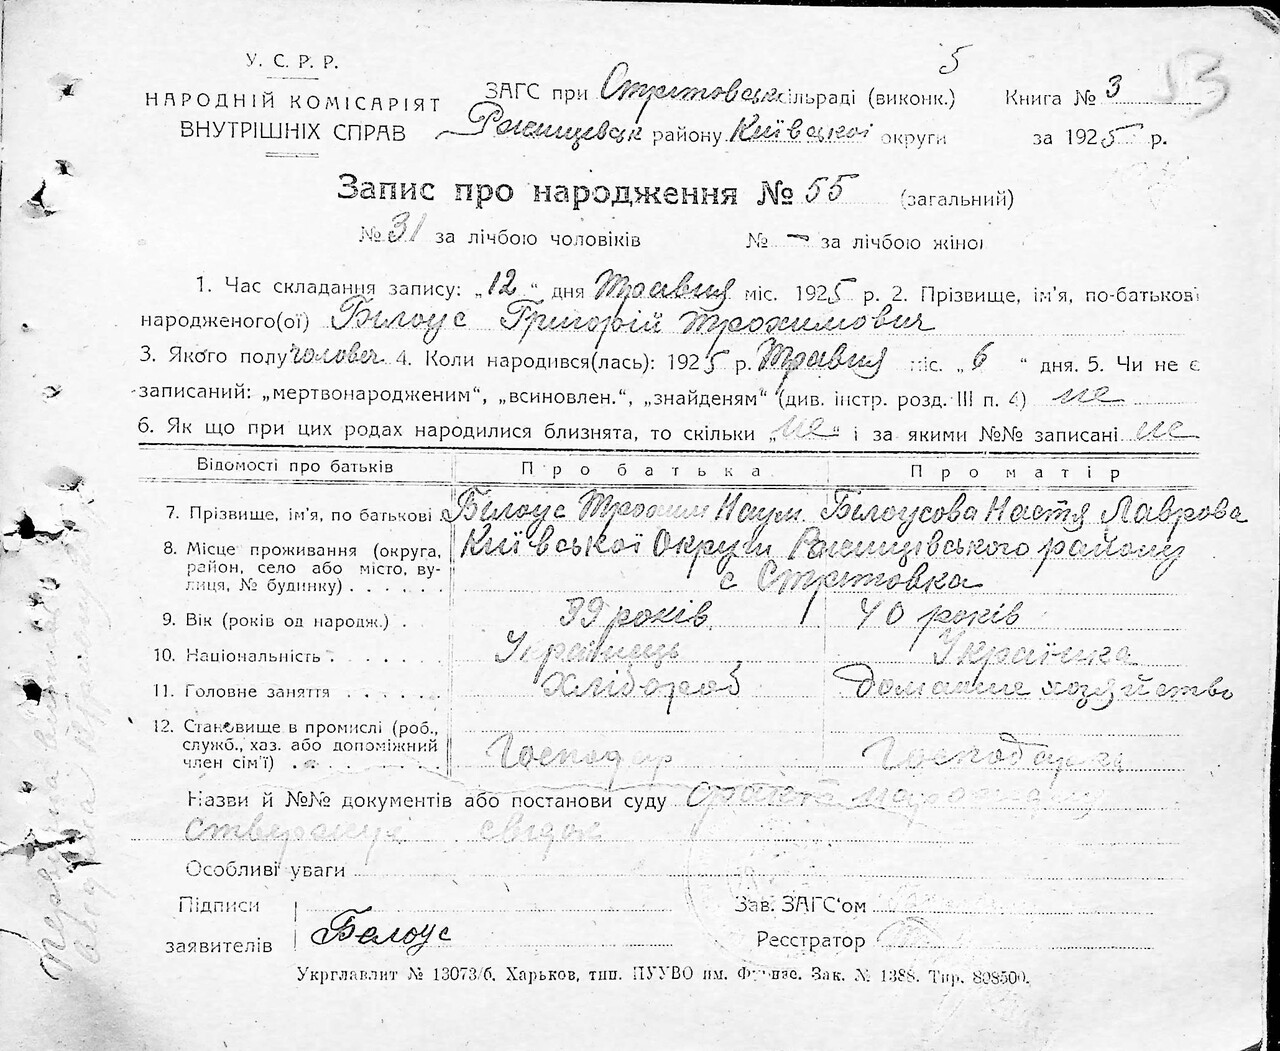 5
У. С. Р. Р.
НАРОДНІЙ КОМІСАРІЯТ
ВНУТРІШНІХ СПРАВ
ЗАГС при Стритовськ сільраді (виконк.)
Ржищевськ району Київської округи
Книга № 3
за 1925 р.
Запис про народження № 55 (загальний)
№ 31 за лічбою чоловіків № — за лічбою жіноч
1. Час складання запису: „12“ дня Травня міс. 1925 р. 2. Прізвище, ім’я, по-батькові
народженого(ої) Білоус Григорій Трохимович
3. Якого полу чоловіч 4. Коли народився(лась): 1925 р. Травня міс. „6“ дня. 5. Чи не є
записаний: „мертвонародженим“, „всиновлен.“, „знайденям“ (див. інстр. розд. III п. 4) не
6. Як що при цих родах народилися близнята, то скільки „не“ і за якими №№ записані не
Відомості про батьків Про батька Про матір
7. Прізвище, ім’я, по батькові Білоус Трохим Наум. Білоусова Настя Лаврова
8. Місце проживання (округа, район, село або місто, вулиця, № будинку) Київської Округи Ржищівського району
с Стритовка
9. Вік (років од народж.) 39 років 40 років
10. Національність Українець Українка
11. Головне заняття Хлібороб Домашнє хозяйство
12. Становище в промислі (роб., служб., хаз. або допоміжний член сім’ї) Господар Господарка
Назви й №№ документів або постанови суду
стверджує свідок
Особливі уваги
Підписи
заявителів Белоус
Зав. ЗАГС‘ом
Реєстратор
Укрглавлит № 13073/б. Харьков, тип. ПУУВО им. Фрунзе. Зак. № 1388. Тир. 808500.